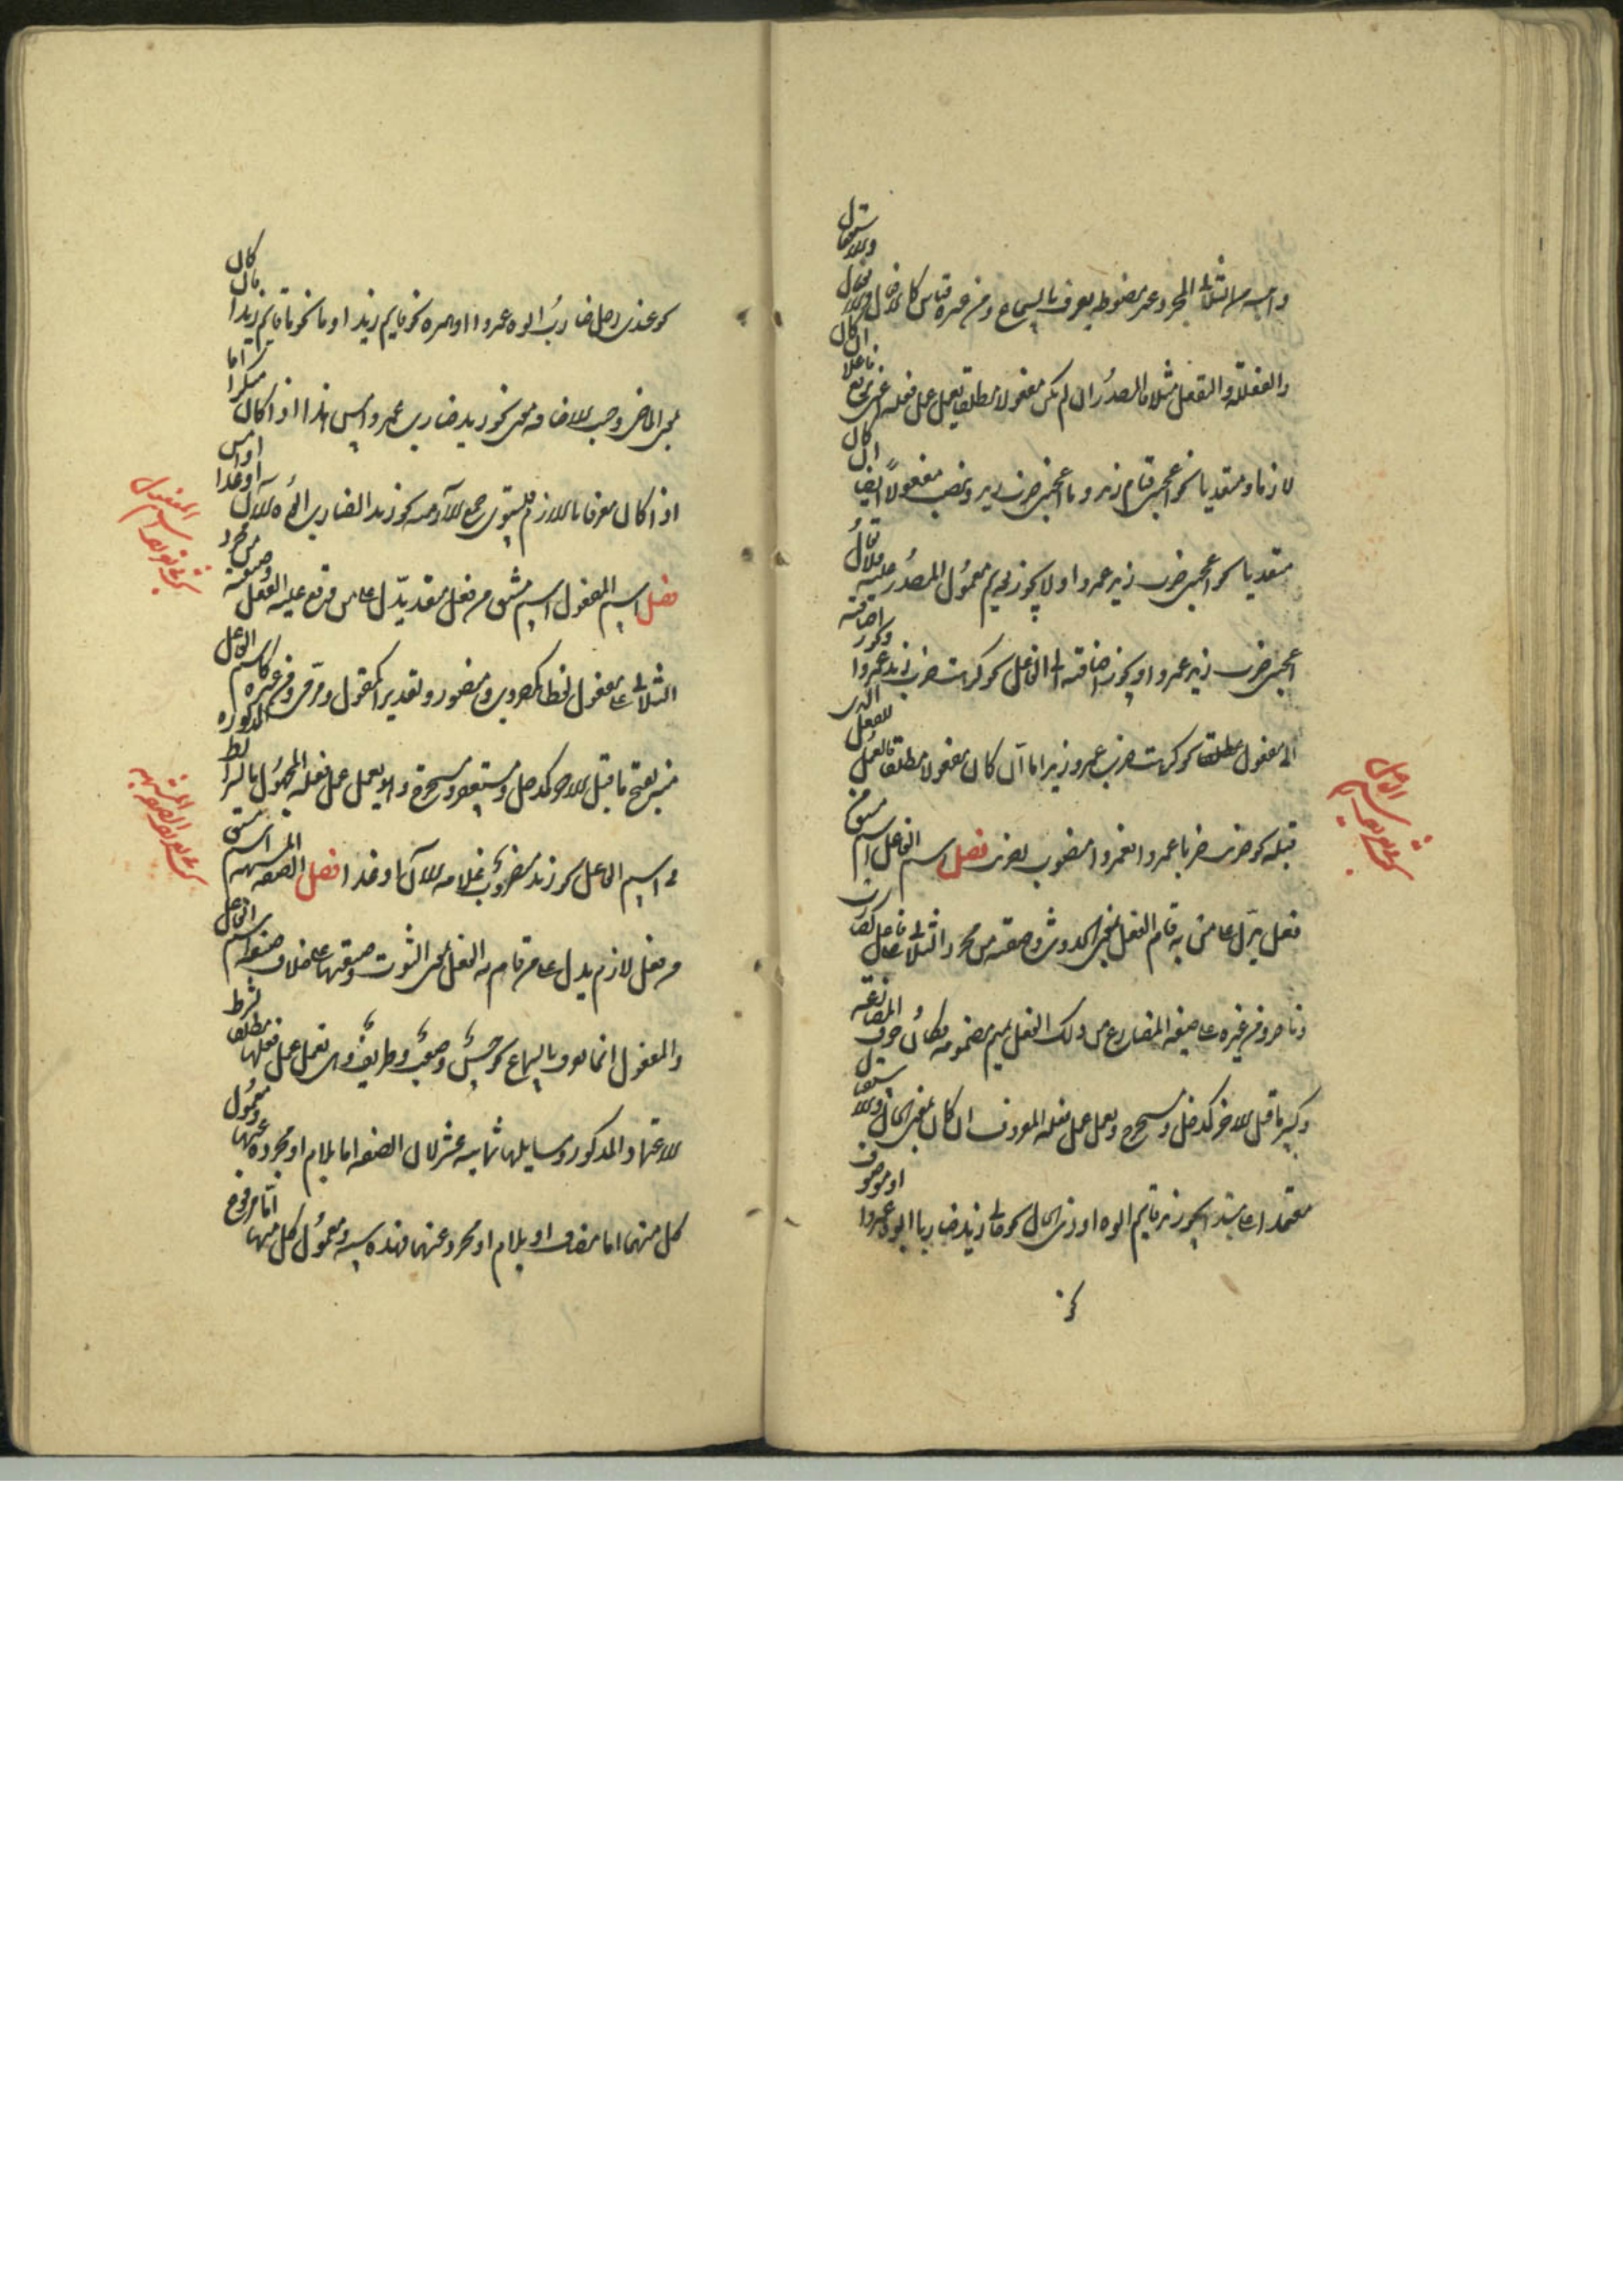 وابنيته من الثلاثي المجرد غير مضبوطة يعرف بالسماع ومن غيره قياس كالافعال والانفعال والاستفعال
والفعللة والتفعلل مثلا فالمصدر ان لم يكن مفعولا مطلقا يعمل عمل فعله اعني يرفع فاعلا ان كان
لازما ومتعديا نحو اعجبني قيام زيد وما اعجبني ضرب زيد وينصب مفعولاً ايضا ان كان
متعديا نحو اعجبني ضرب زيد عمروا ولا يجوز تقديم معمول المصدر عليه فلا يقال
اعجبني ضرب زيد عمروا ويجوز اضافته الى الفاعل نحو كرهت ضرب زيد عمروا وكرر اضافته
الى المفعول مطلقا نحو كرهت ضرب عمرو زيد اما ان كان مفعولا مطلقا فالعمل للفعل الذي
قبله نحو ضربت ضربا عمروا فعمروا منصوب بضربت فصل اسم الفاعل اسم مشتق من
فعل يدل على من به قام الفعل بمعنى الحدوث وصيغته من مجرد الثلاثي على فاعل كضارب
وناصر ومن غيره على صيغة المضارع من ذلك الفعل بميم مضمومة مكان حرف المضارعة
وكسر ما قبل الاخر كمدخل ومستخرج ويعمل عمل فعله المعروف ان كان بمعنى الحال والاستقبال
معتمدا على مبتدا نحو زيد قائم ابوه او ذي الحال نحو جاءني زيد ضاربا ابوه عمروا او موصوف
اسم الفاعل
نحو عندي رجل ضارب ابوه عمروا او همزة نحو اقايم زيد او ما نحو ما قائم زيد فان كان
بمعنى الماضي وجب الاضافة معنى نحو زيد ضارب عمرو امس هذا اذا كان منكرا اما
اذا كان معرفا باللام فيستوي جميع الازمنة نحو زيد الضارب ابوه الآن او غدا او امس
فصل اسم المفعول اسم مشتق من فعل متعد يدل على من وقع عليه الفعل وصيغته من مجرد
الثلاثي على مفعول لفظا كمضروب ومنصور وتقديرا كمقول ومرمي ومن غيره كاسم الفاعل
منه بفتح ما قبل الاخر كمدخل ومستخرج ويعمل عمل فعله المجهول بالشرائط المذكورة
في اسم الفاعل نحو زيد مضروب غلامه الآن او غدا فصل الصفة المشبهة اسم مشتق
من فعل لازم يدل على من قام به الفعل بمعنى الثبوت وصيغتها على خلاف صيغة اسم الفاعل
والمفعول انما يعرف بالسماع كحسن وصعب وظريف وهي تعمل عمل فعلها مطلقا بشرط
الاعتماد المذكور ومسايلها ثمانية عشر لان الصفة اما باللام او مجردة عنها ومعمول
كل منهما اما مضاف او باللام او مجرد عنهما فهذه ستة ومعمول كل منها اما مرفوع
اسم المفعول